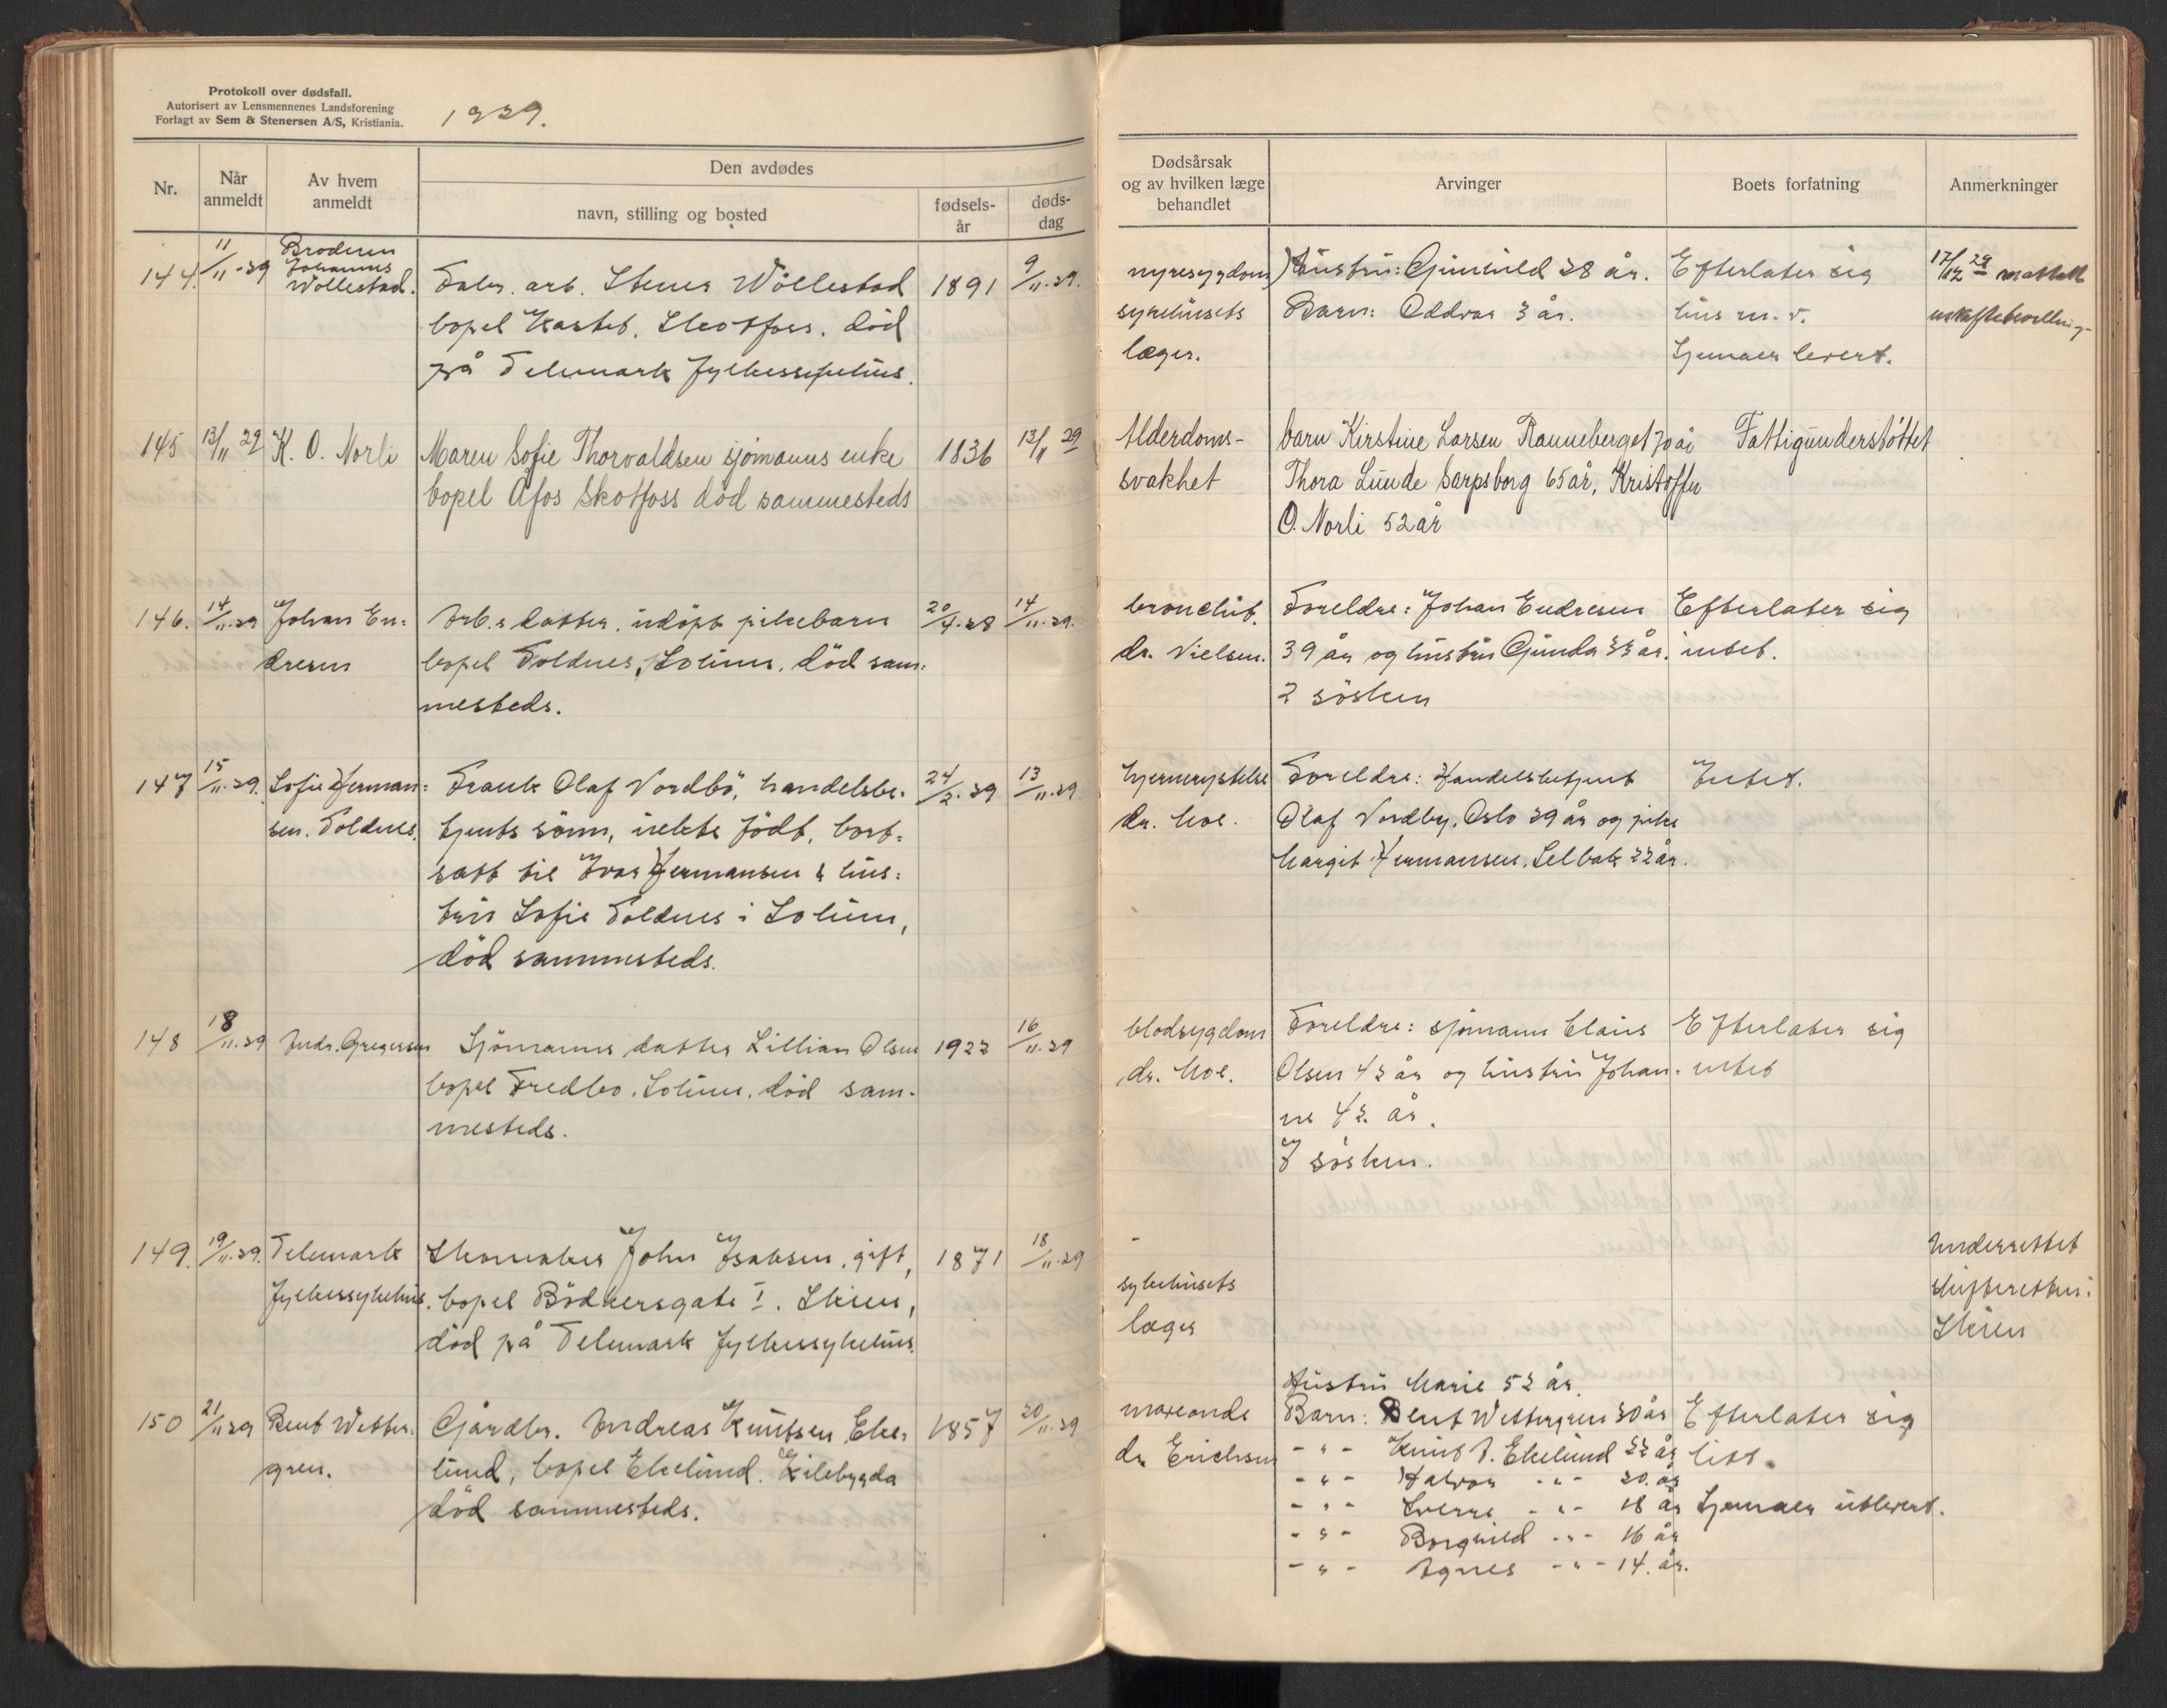 Protokoll over dødsfall.
Autorisert av Lensmennenes Landsforening
Forlagt av Sem & Stenersen A/S, Kristiania.
1929.
Nr.
Når anmeldt
Av hvem anmeldt
Den avdødes
navn, stilling og bosted
fødsels-år
døds-dag
Dødsårsak og av hvilken læge behandlet
Arvinger
Boets forfatning
Anmerkninger
144. 11/11-29 Broderen Johannes Wöllestad.
Fabr. arb. Stener Wöllestad 1891 9/11.29.
bopel Kasteb. Skotfoss. död
på Telemark fylkessykehus.
nyresygdom
sykehusets
læger.
Hustru: Gunhild 28 år.
Barn: Oddvar 3 år.
Efterlater sig
hus m. v.
Skjemaer levert.
17/12 29 mottatt
uskiftebevilling
145 13/11 29 K. O. Norli
Maren Sofie Thorvaldsen sjömanns enke 1836 13/11 29
bopel Åfos Skotfoss död sammesteds
Alderdoms-
svakhet
barn Kirstine Larsen Ranneberget 70 år
Thora Lunde Sarpsborg 65 år, Kristoffer
O. Norli 52 år
Fattigunderstöttet
146. 14/11.29 Johan En=
dresen
Arb.s datter. udöpt pikebarn 20/4.28 14/11.29.
bopel Foldnes, Solum. död sam=
mesteds.
bronchit.
dr. Nielsen.
Foreldre: Johan Endresen
39 år og hustru Gunda 33 år.
2 sösken
Efterlater sig
intet.
147 15/11.29. Sofie Herman=
sen. Foldnes.
Frank Olaf Nordbö, handelsbe= 24/2.29 13/11.29
tjents sönn, uekte födt, bort=
satt til Ivar Hermansen & hus=
tru Sofie Foldnes i Solum,
död sammesteds.
hjernerystelse
dr. Moe.
Foreldre: Handelsbetjent
Olaf Nordby, Oslo 29 år og pike
Margit Hermansen, Selbak 22 år.
Intet.
148 18/11.29 Andr. Gregersen
Sjömanns datter Lillian Olsen 1922 16/11.29
bopel Fredbo. Solum. död sam-
mesteds.
blodsygdom
dr. Moe.
Foreldre: sjömann Claus
Olsen 42 år og hustru Johan=
ne 42 år.
7 sösken.
Efterlater sig
intet
149. 19/11.29. Telemark
fylkessykehus.
Skomaker John Isaksen, gift, 1871 18/11.29
bopel Bödkersgate I. Skien,
död på Telemark fylkessykehus.
-
sykehusets
læger
Underrettet
skifteretten i
Skien
150 21/11 29 Bent Wetter=
gren.
Gårdbr. Andreas Knutsen Eke= 1857 20/11.29
lund, bopel Ekelund. Kilebygda
död sammesteds.
dr. Erichsen
Hustru Marie 52 år.
Barn: Bent Wettergren 30 år
-"- Knut A. Ekelund 22 år
-"- Halvor -"- 20. år
-"- Sverre -"- 18 år
-"- Borghild -"- 16 år
-"- Agnes -"- 14. år.
Efterlater sig
litt.
Skjemaer utlevert.